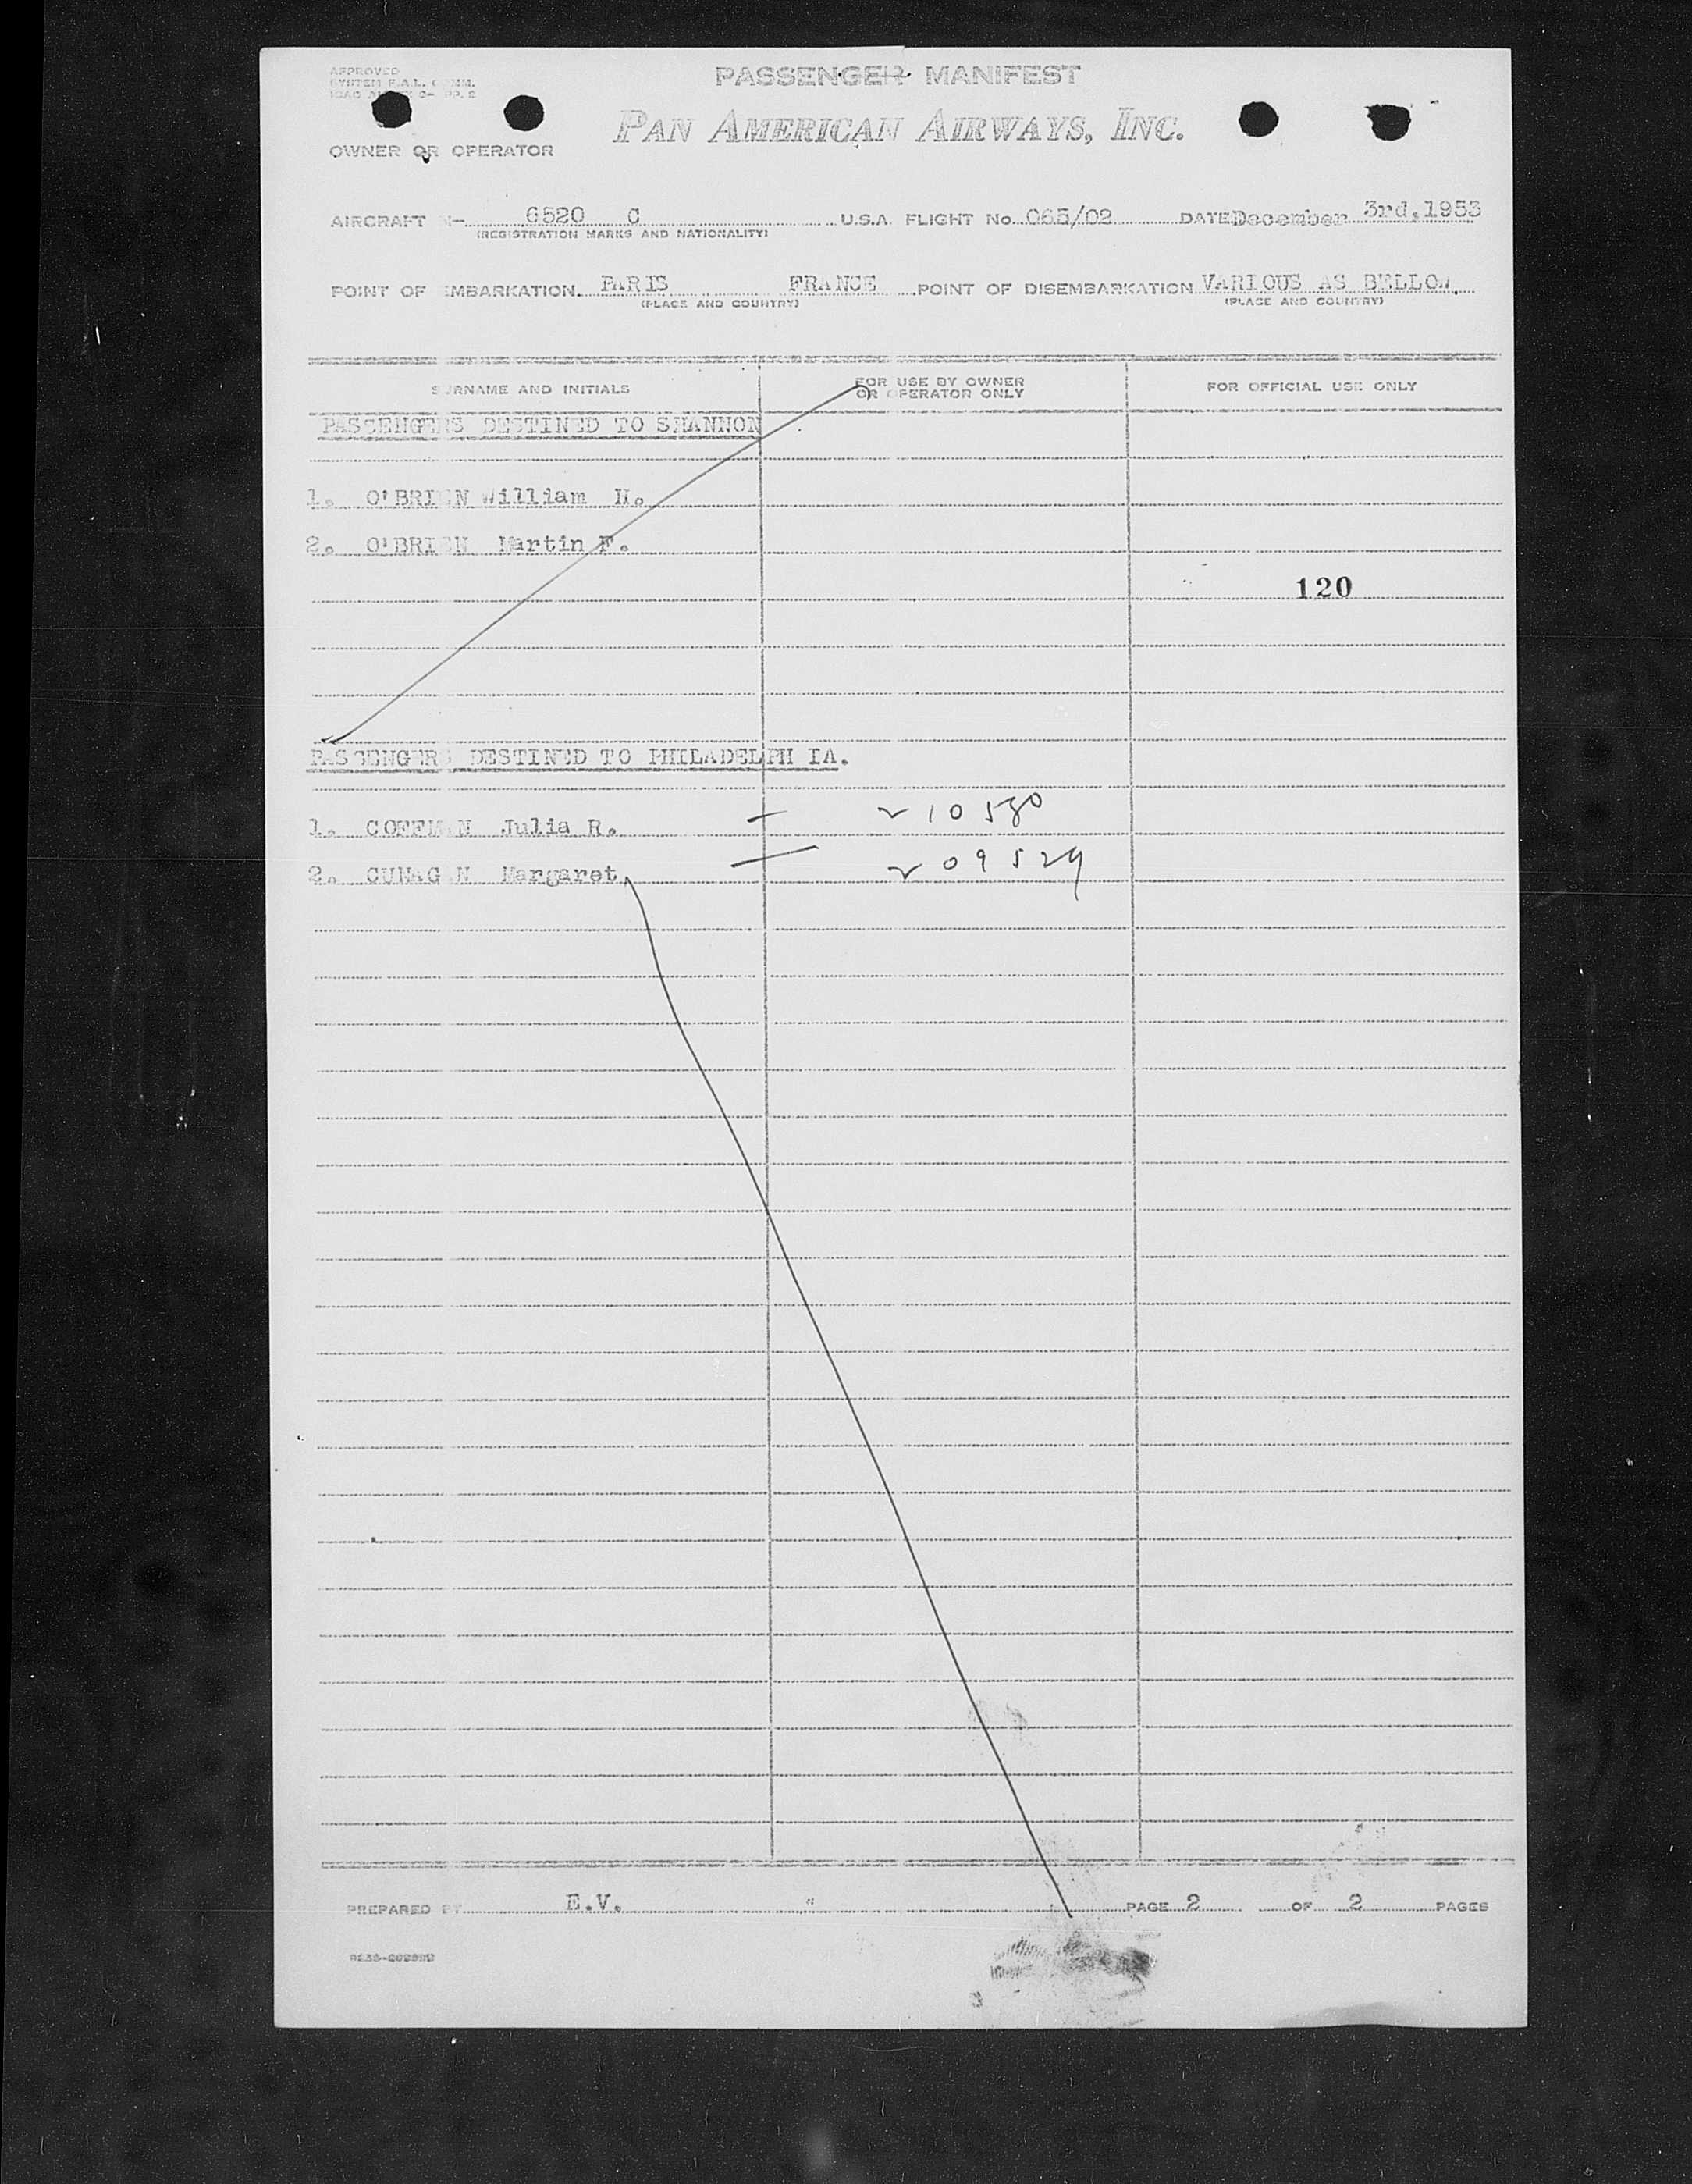 PASSENGER MANIFEST
APPROVED
PAN AMERICAN AIRWAYS, INC.
OWNER OR OPERATOR
AIRCRAFT N- 6520 C U.S.A. FLIGHT No. 065/02 DATE December 3rd, 1953
(REGISTRATION MARKS AND NATIONALITY)
POINT OF EMBARKATION PARIS FRANCE POINT OF DISEMBARKATION VARIOUS AS BELLOW.
(PLACE AND COUNTRY) (PLACE AND COUNTRY)
SURNAME AND INITIALS FOR USE BY OWNER OR OPERATOR ONLY FOR OFFICIAL USE ONLY
PASSENGERS DESTINED TO SHANNON
1. O'BRIEN William H.
2. O'BRIEN Martin F.
120
PASSENGERS DESTINED TO PHILADELPH IA.
1. COFFMAN Julia R.
2. CUNAGAN Margaret
PREPARED BY E.V. PAGE 2 OF 2 PAGES